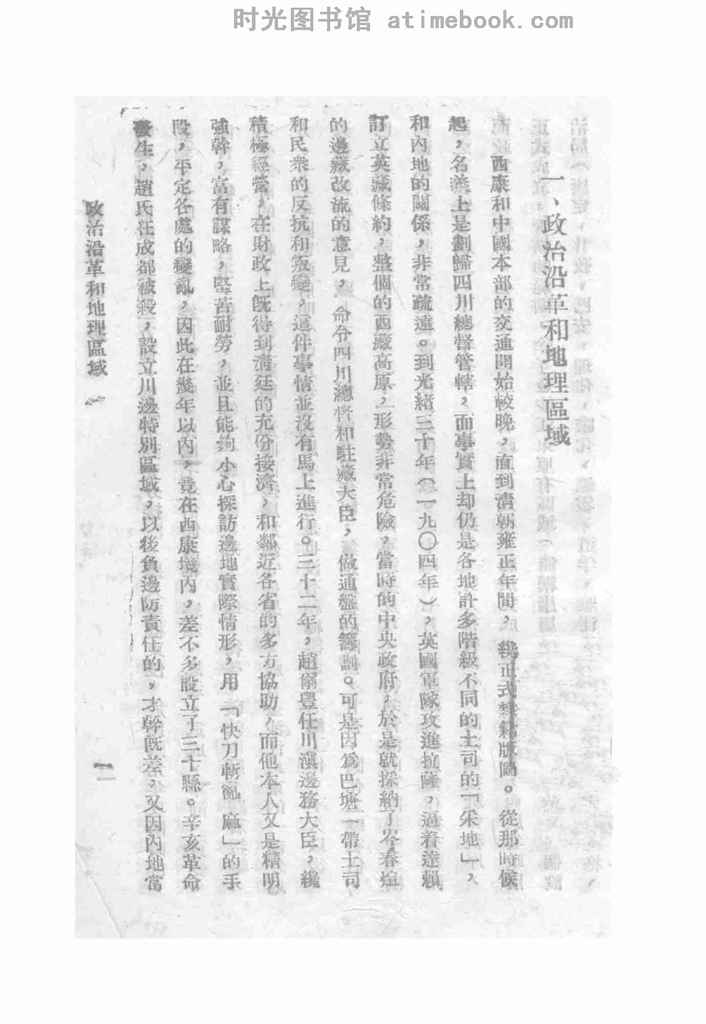 时光图书馆 atimebook.com
一、政治沿革和地理區域
西康和中國本部的交通開始較晚，直到清朝雍正年間，纔正式歸版圖。從那時候
起，名義上是劃歸四川總督管轄，而事實上却仍是各地許多階級不同的土司的「采地」，
和內地的關係，非常疏遠。到光緒三十年（一九〇四年），英國軍隊攻進拉薩，逼着達賴
訂立英藏條約，整個的西藏高原，形勢非常危險，當時的中央政府，於是就採納了岑春煊
的邊藏改流的意見，命令四川總督和駐藏大臣，做通盤的籌劃。可是因爲巴塘一帶土司
和民衆的反抗和叛變，這件事情並沒有馬上進行。三十二年，趙爾豐任川滇邊務大臣，纔
積極經營，在財政上旣得到清廷的充份接濟，和鄰近各省的多方協助，而他本人又是精明
強幹，富有謀略，堅苦耐勞，並且能夠小心探訪邊地實際情形，用「快刀斬亂麻」的手
段，平定各處的變亂，因此在幾年以內，竟在西康境內，差不多設立了三十縣。辛亥革命
發生，趙氏在成都被殺，設立川邊特別區域，以後負邊防責任的，才幹旣差，又因內地常
政治沿革和地理區域
一